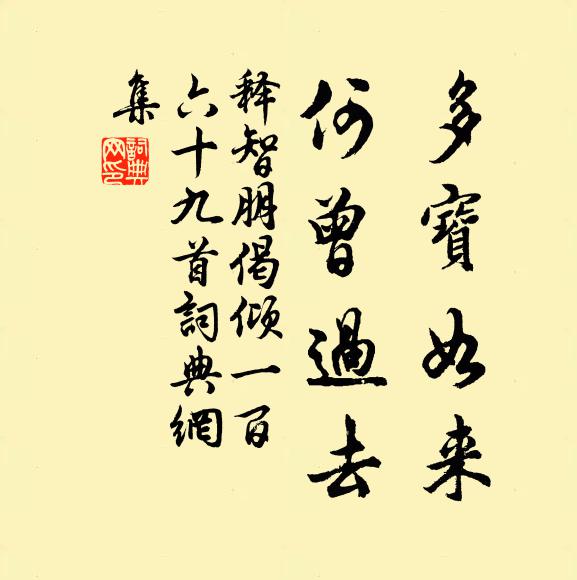 多寶如来
何曾過去
释智朋偈倾一百
六十九首詞典網
集
詞典
网印